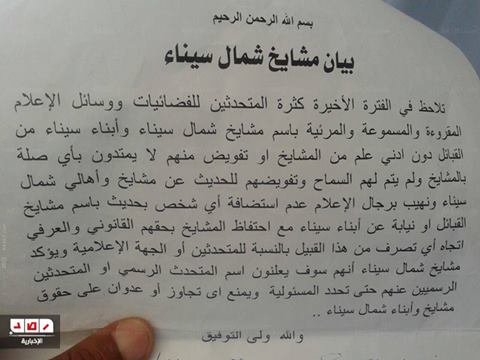 بسم الله الرحمن الرحيم
بيان مشايخ شمال سيناء
تلاحظ في الفترة الأخيرة كثرة المتحدثين للفضائيات ووسائل الإعلام
المقروءة والمسموعة والمرئية باسم مشايخ شمال سيناء وأبناء سيناء من
القبائل دون ادني علم من المشايخ او تفويض منهم لا يمتدون بأي صلة
بالمشايخ ولم يتم لهم السماح وتفويضهم للحديث عن مشايخ وأهالي شمال
سيناء ونهيب برجال الإعلام عدم استضافة أي شخص بحديث باسم مشايخ
القبائل او نيابة عن أبناء سيناء مع احتفاظ المشايخ بحقهم القانوني والعرفي
اتجاه أي تصرف من هذا القبيل بالنسبة للمتحدثين أو الجهة الإعلامية ويؤكد
مشايخ شمال سيناء أنهم سوف يعلنون اسم المتحدث الرسمي او المتحدثين
الرسميين عنهم حتى تحدد المسئولية ويمنع اى تجاوز أو عدوان على حقوق
مشايخ وأبناء شمال سيناء ..
والله ولى التوفيق
رصد
الإخبارية